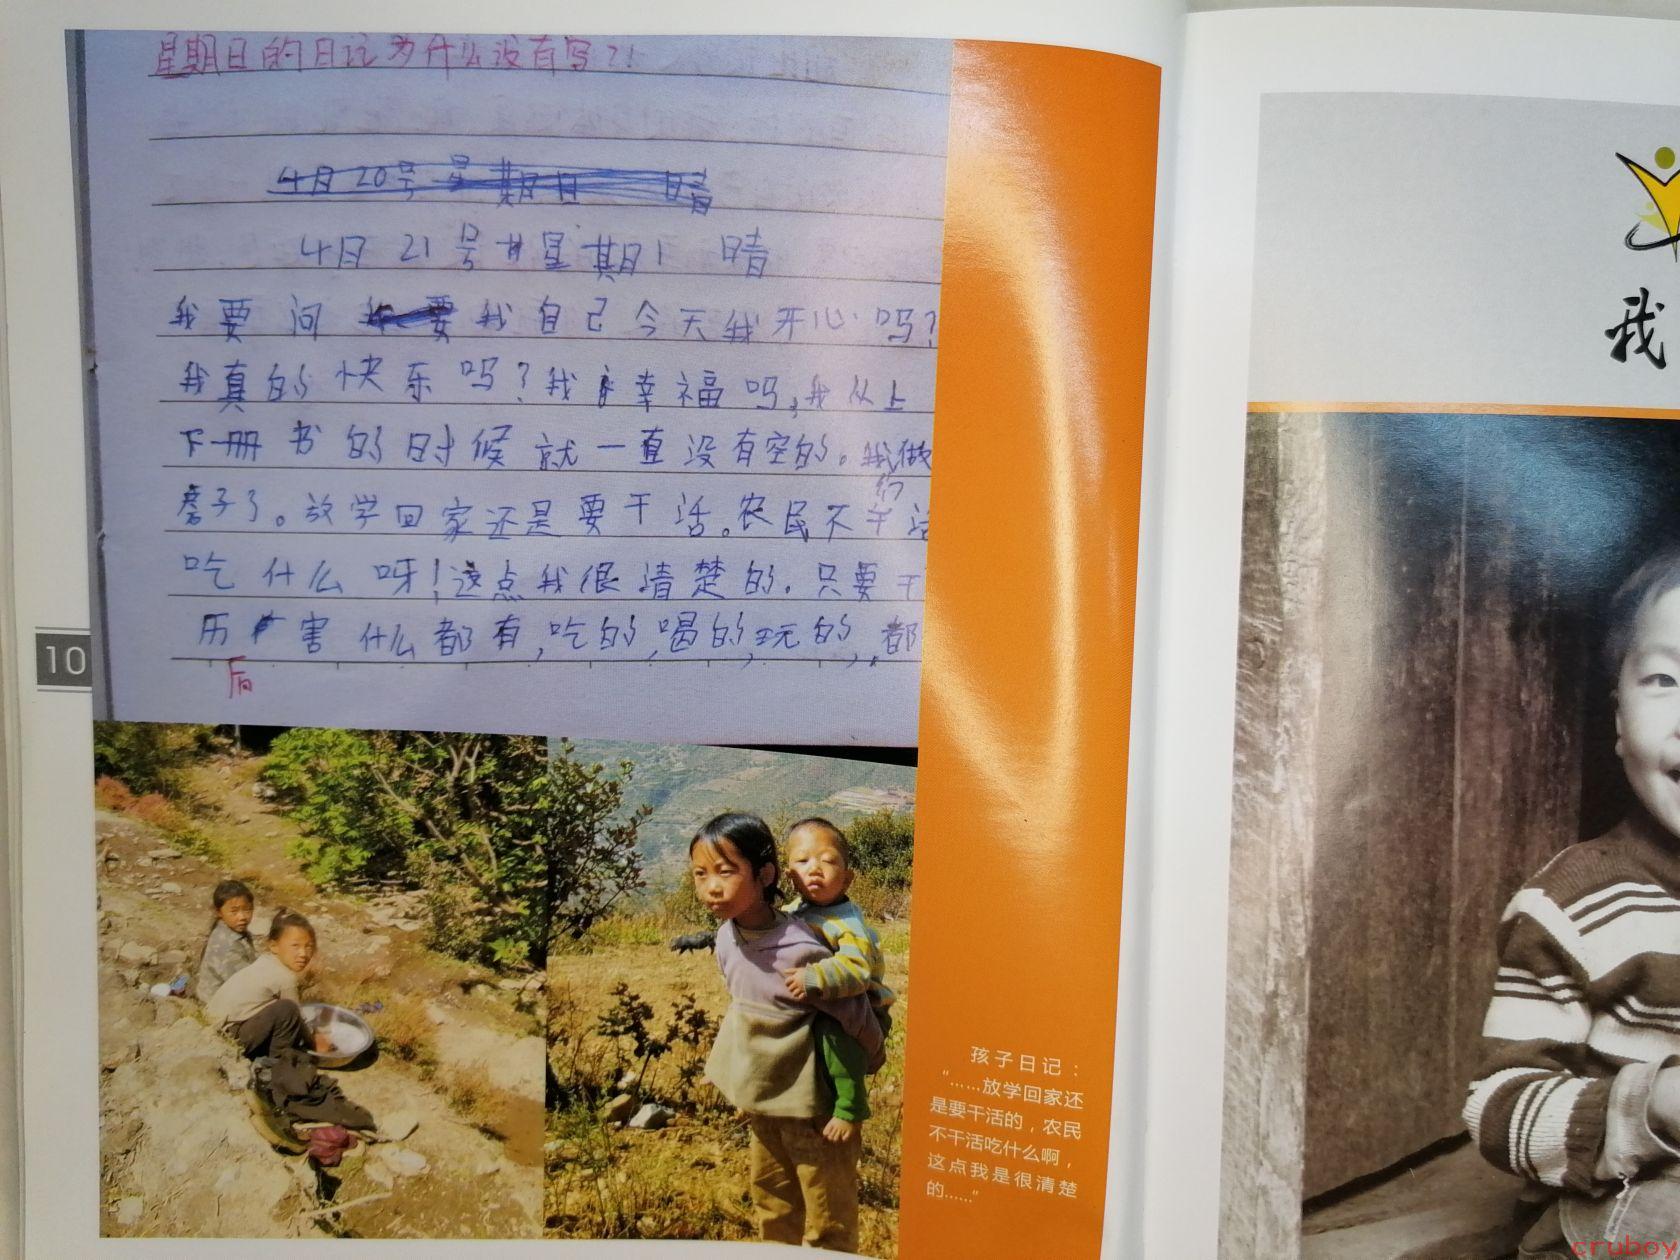 星期日的日记为什么没有写?!
4月20号 星期日 晴
4月21号 星期1 晴
我要问 我自己今天我开心吗?
我真的快乐吗?我 幸福吗,我从上
下册书的时候就一直没有空的。我做
子了。放学回家还是要干活。农民不干活
们
吃什么呀!这点我很清楚的。只要干
历 害什么都有,吃的,喝的,玩的,都
后
10
孩子日记:
“……放学回家还
是要干活的,农民
不干活吃什么啊,
这点我是很清楚
的……”
我
cruboy